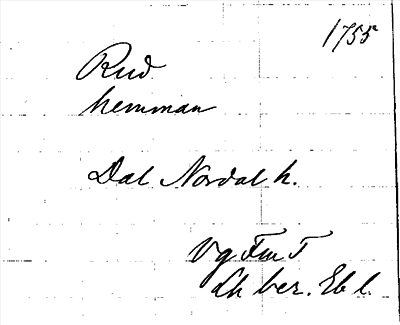 1755
Rud
hemman
Dal Nordal h.
Vg Fm T
Lh ber. Eb l.